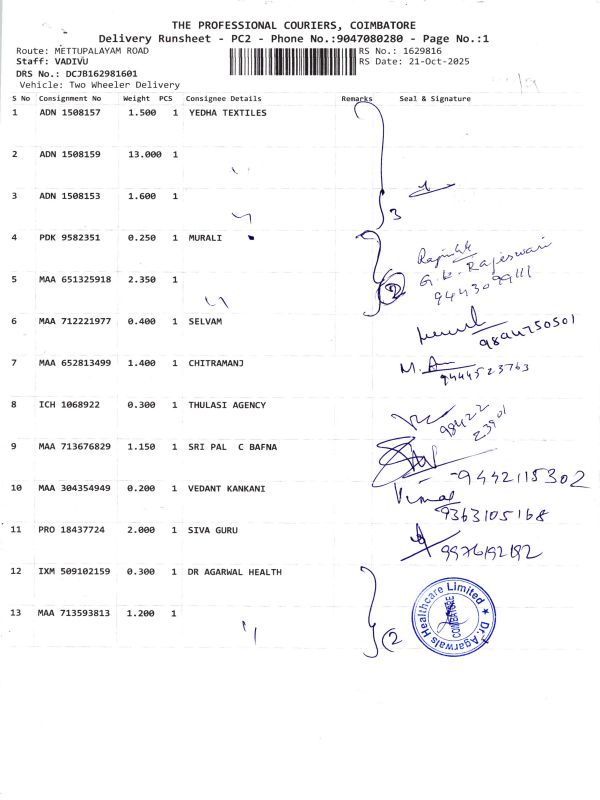 THE PROFESSIONAL COURIERS, COIMBATORE
Delivery Runsheet - PC2 - Phone No.:9047080280 - Page No.:1
Route: METTUPALAYAM ROAD RS No.: 1629816
Staff: VADIVU RS Date: 21-Oct-2025
DRS No.: DCJB162981601
Vehicle: Two Wheeler Delivery
S No Consignment No Weight PCS Consignee Details Remarks Seal & Signature
1 ADN 1508157 1.500 1 YEDHA TEXTILES
2 ADN 1508159 13.000 1
3 ADN 1508153 1.600 1
3
4 PDK 9582351 0.250 1 MURALI
G.K. Rajeswari
5 MAA 651325918 2.350 1 2
9443099111
6 MAA 712221977 0.400 1 SELVAM
7 MAA 652813499 1.400 1 CHITRAMANJ
9444523763
8 ICH 1068922 0.300 1 THULASI AGENCY
98422
23901
9 MAA 713676829 1.150 1 SRI PAL C BAFNA
9442115302
10 MAA 304354949 0.200 1 VEDANT KANKANI
Vimal
9363105168
11 PRO 18437724 2.000 1 SIVA GURU
9976192192
12 IXM 509102159 0.300 1 DR AGARWAL HEALTH
13 MAA 713593813 1.200 1
2
Dr. Agarwals Healthcare Limited
COIMBATORE